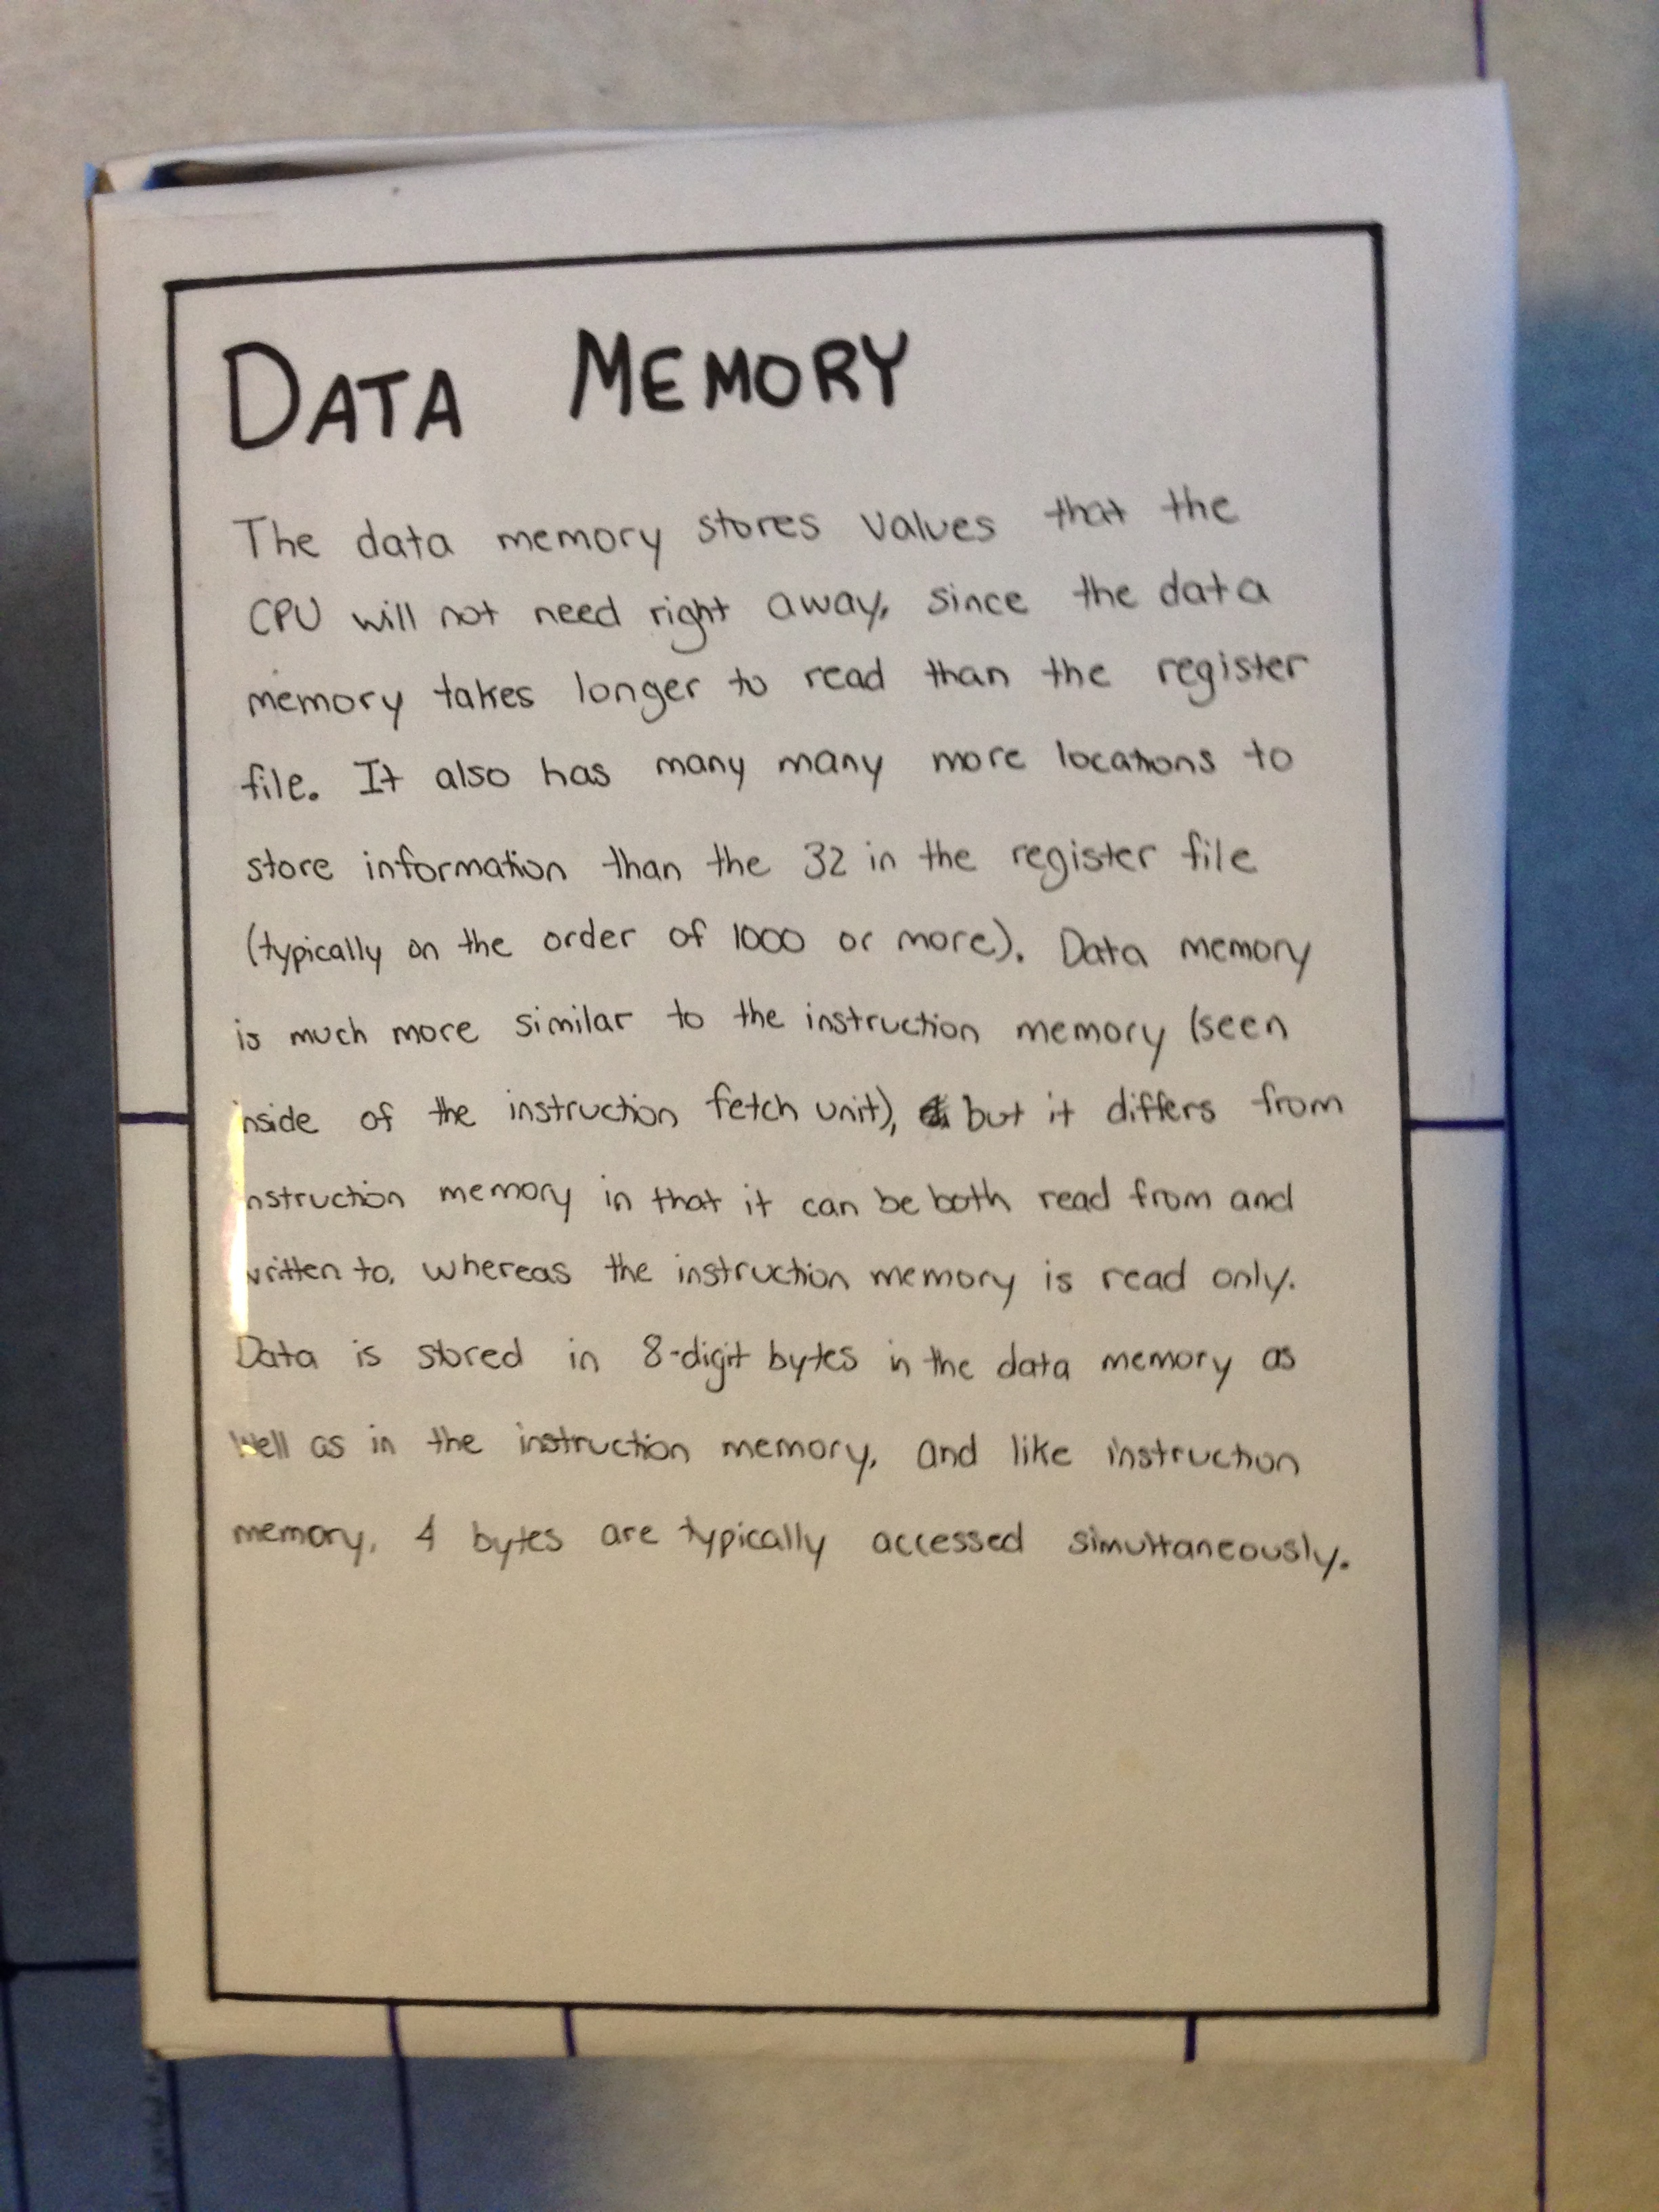 DATA MEMORY
The data memory stores values that the
CPU will not need right away, since the data
memory takes longer to read than the register
file. It also has many many more locations to
store information than the 32 in the register file
(typically on the order of 1000 or more). Data memory
is much more similar to the instruction memory (seen
inside of the instruction fetch unit), but it differs from
instruction memory in that it can be both read from and
written to, whereas the instruction memory is read only.
Data is stored in 8-digit bytes in the data memory as
well as in the instruction memory, and like instruction
memory, 4 bytes are typically accessed simultaneously.